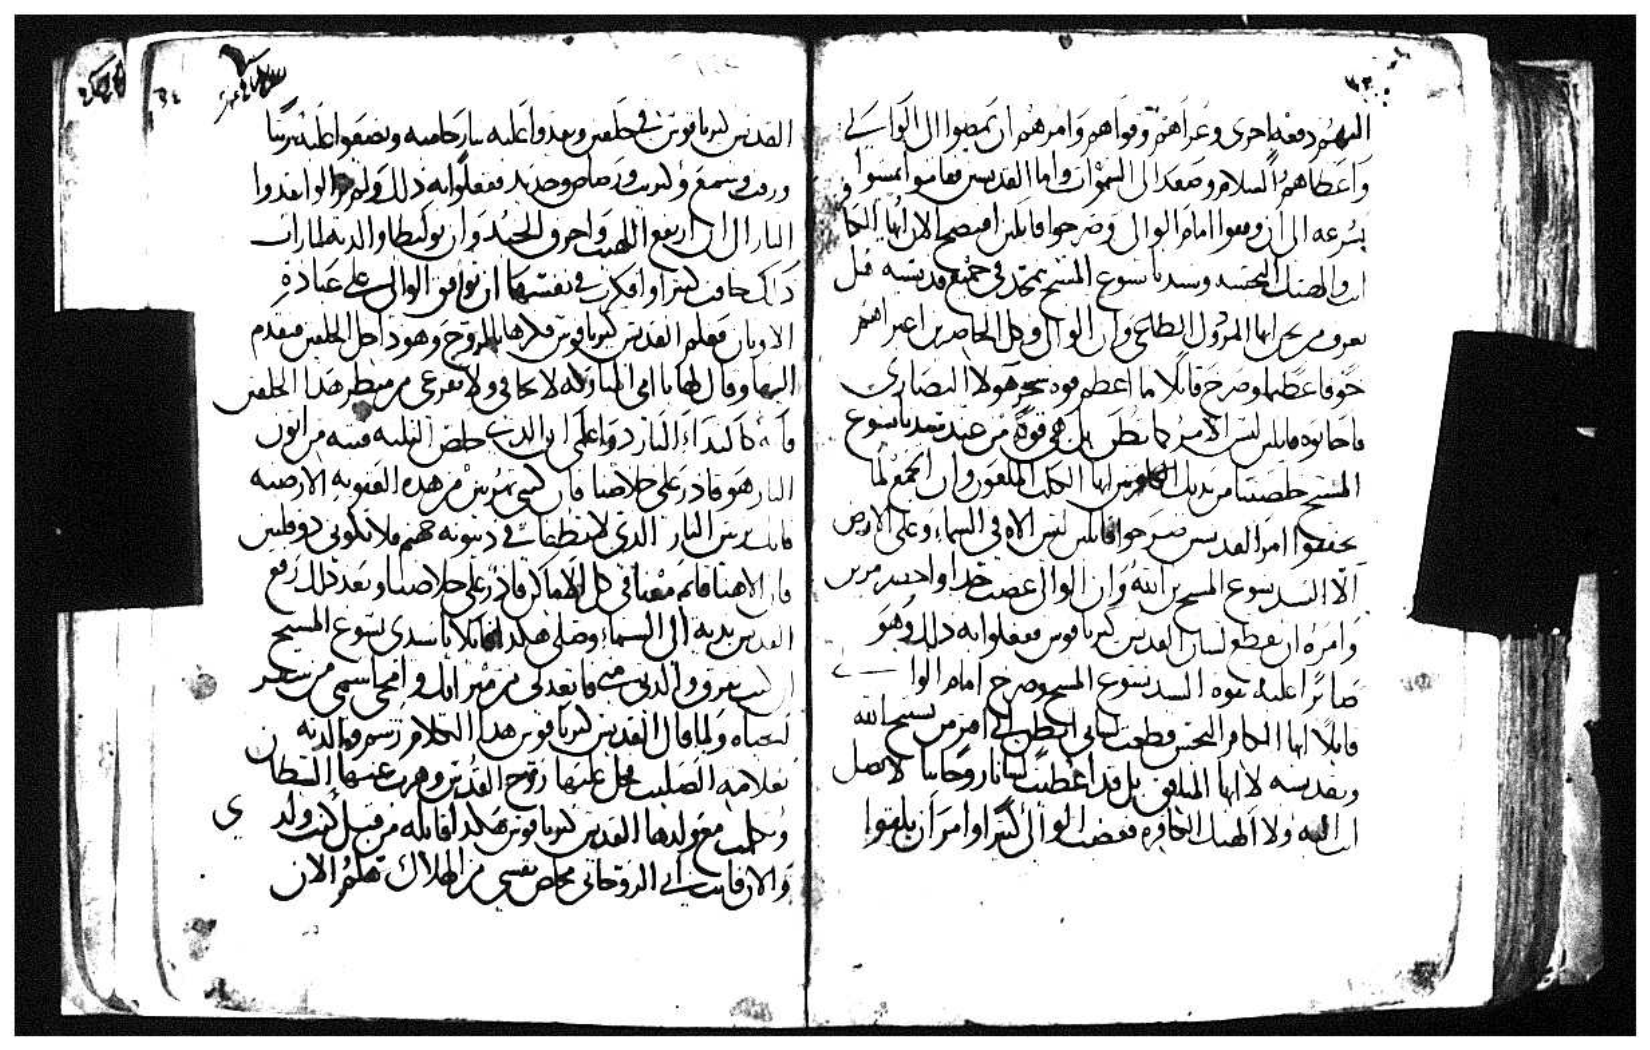 اليهم دفعه اخرى وعزاهم وقواهم وامرهم ان يمضوا الى الوالي
واعطاهم السلام وصعد الى السموات واما القديسين فقاموا يمشوا
بسرعه الى ان وقفوا امام الوالي وصرخوا قايلين افتضح الان ايها الكافر
انت والهتك النجسه وسيدنا يسوع المسيح يتمجد في جميع قديسيه قبل
نعرف من نحن ايها المرذول الطاغي وان الوالي وكل الحاضرين اعتراهم
خوفا عظيما وصرخ قايلا ما اعظم قوة سحر هولا النصارى
فاجابوه قايلين ليس الامر كما تظن بل هي قوة من عند سيدنا يسوع
المسيح خلصتنا من يديك ايها الكلب الملعون وان الجمع لما
تحققوا امر القديسين صرخوا قايلين ليس الاه في السماء وعلى الارض
الا السيد يسوع المسيح بن الله وان الوالي غضب جدا واحضر مزين
وامره ان يقطع لسان القديس كيرياقوس ففعلوا به ذلك وهو
صابرا عليه بقوة السيد يسوع المسيح وصرخ امام الوالي
قايلا ايها الكافر النجس قطعت لساني اتظن اني افتر من تسبيح الله
وتقديسه لا ايها المنافق بل قد اعطيت لسانا روحانيا لا تصل
انت اليه ولا الهتك الكافره فغضب الوالي كثيرا وامر ان يلقوا
34
القديس كيرياقوس في خلقين ويقدوا عليه بنار حاميه ويضعوا عليه زيتا
وزفت وشمع وكبريت ورصاص وحديد ففعلوا به ذلك ولم يزالوا يقدوا
النار الى ان ارتفع اللهيب واحرق الحديد وان يوليطا والدته لما رات
ذلك خافت كثيرا وافكرت في نفسها ان توافق الوالي على عبادة
الاوثان فعلم القديس كيرياقوس فكرها بالروح وهو داخل الخلقين فتقدم
اليها وقال لها يا امي المباركه لا تخافي ولا تفزعي من منظر هذا الخلقين
النار هو قادر على خلاصنا فان كنتي تهربين من هذه العقوبه الارضيه
النار الذي لا تطفا في دينونه جهنم فلا تكوني ذو قلبين
فان الاهنا قايم معنا في كل الاماكن قادر على خلاصنا وبعد ذلك رفع
القديس يديه الى السماء وصلى هكذا قايلا يا سيدي يسوع المسيح
الحياه ولما قال القديس كيرياقوس هذا الكلام رسم والدته
بعلامة الصليب فحل عليها روح القدس وهرب عنها الشيطان
وتكلمت مع ولدها القديس كيرياقوس هكذا قايله من قبل كنت ولدي
والان فانت ابي الروحاني مخلص نفسي من الهلاك هلم الان